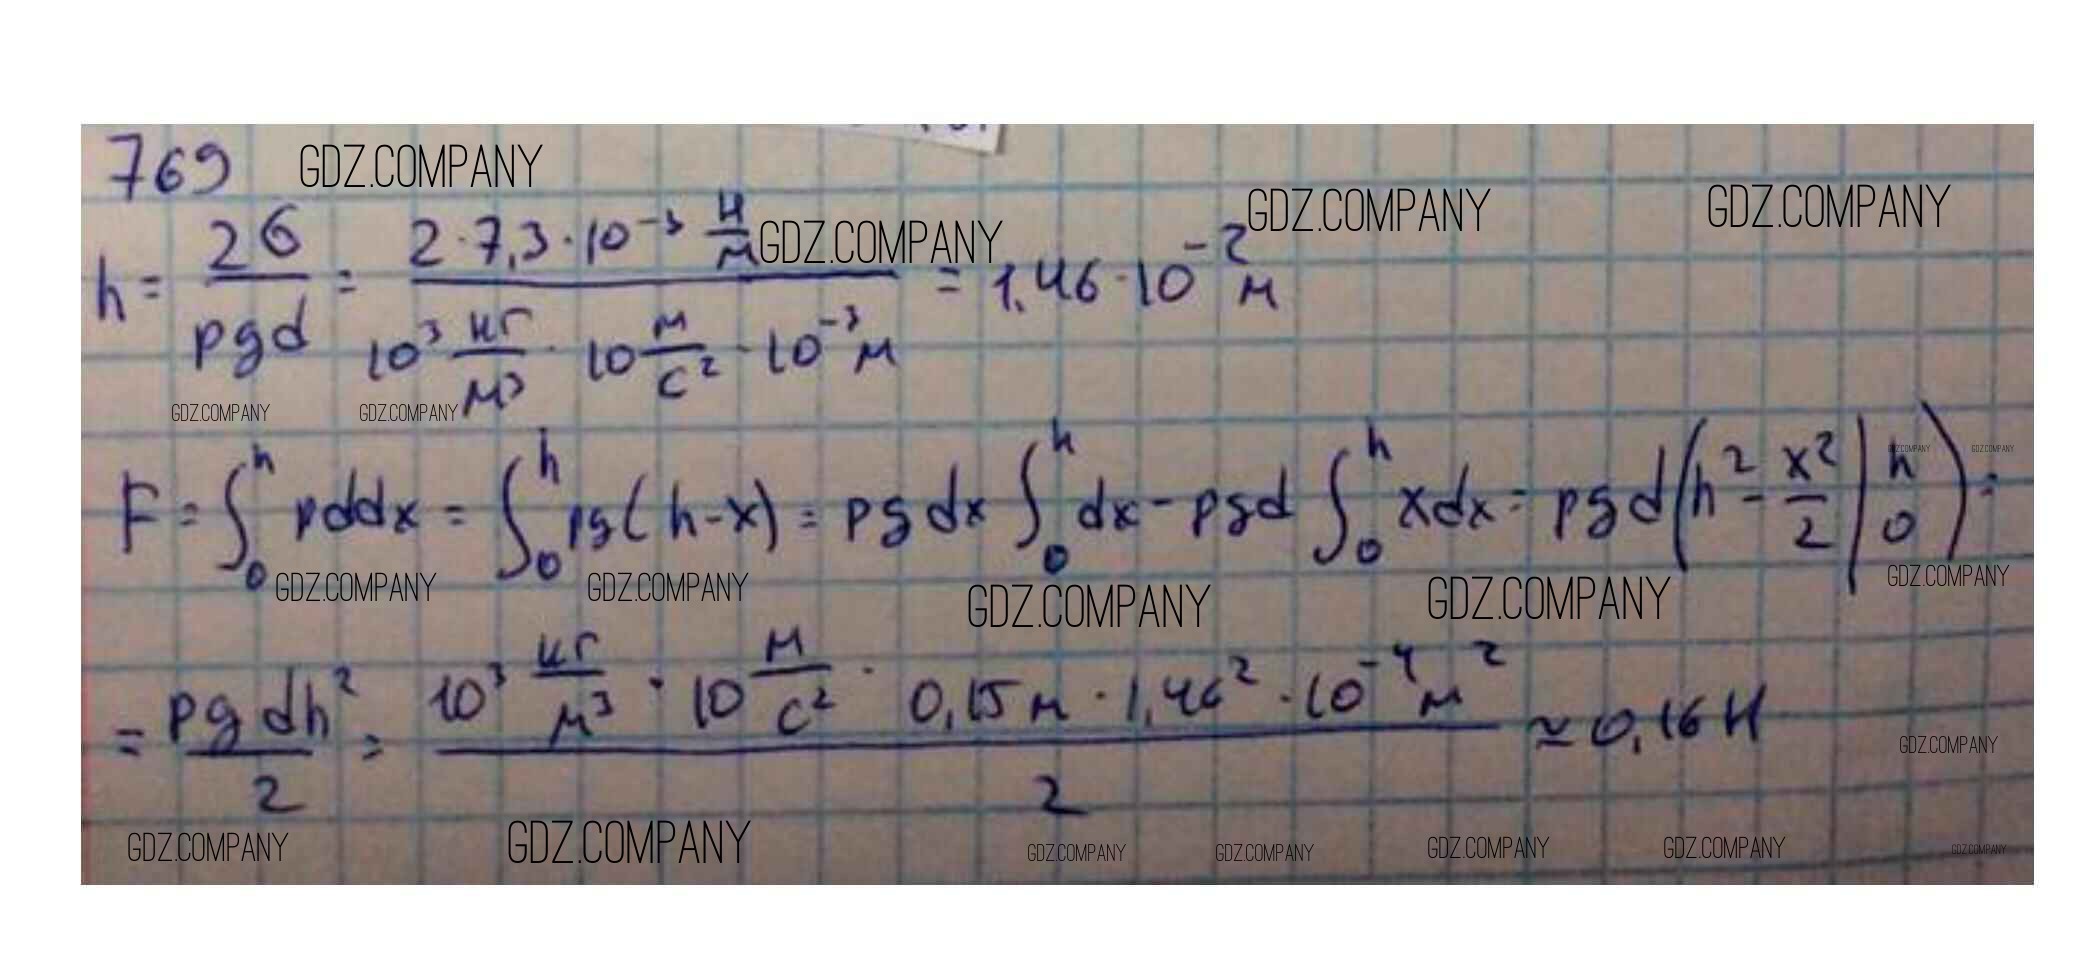 769 GDZ.COMPANY
GDZ.COMPANY GDZ.COMPANY GDZ.COMPANY
h = 2б / ρgd = 2·7,3·10⁻³ Н/м / 10³ кг/м³ · 10 м/с² · 10⁻³ м = 1,46·10⁻² м
GDZ.COMPANY GDZ.COMPANY
GDZ.COMPANY GDZ.COMPANY
F = ∫₀ʰ pddx = ∫₀ʰ ρg(h-x) = ρgdx ∫₀ʰ dx - ρgd ∫₀ʰ xdx = ρgd(h² - x²/2 |ʰ₀) =
GDZ.COMPANY GDZ.COMPANY GDZ.COMPANY GDZ.COMPANY GDZ.COMPANY
= ρgdh² / 2 = 10³ кг/м³ · 10 м/с² · 0,15м · 1,46² · 10⁻⁴ м² / 2 ≈ 0,16 Н
GDZ.COMPANY
GDZ.COMPANY GDZ.COMPANY GDZ.COMPANY GDZ.COMPANY GDZ.COMPANY GDZ.COMPANY GDZ.COMPANY